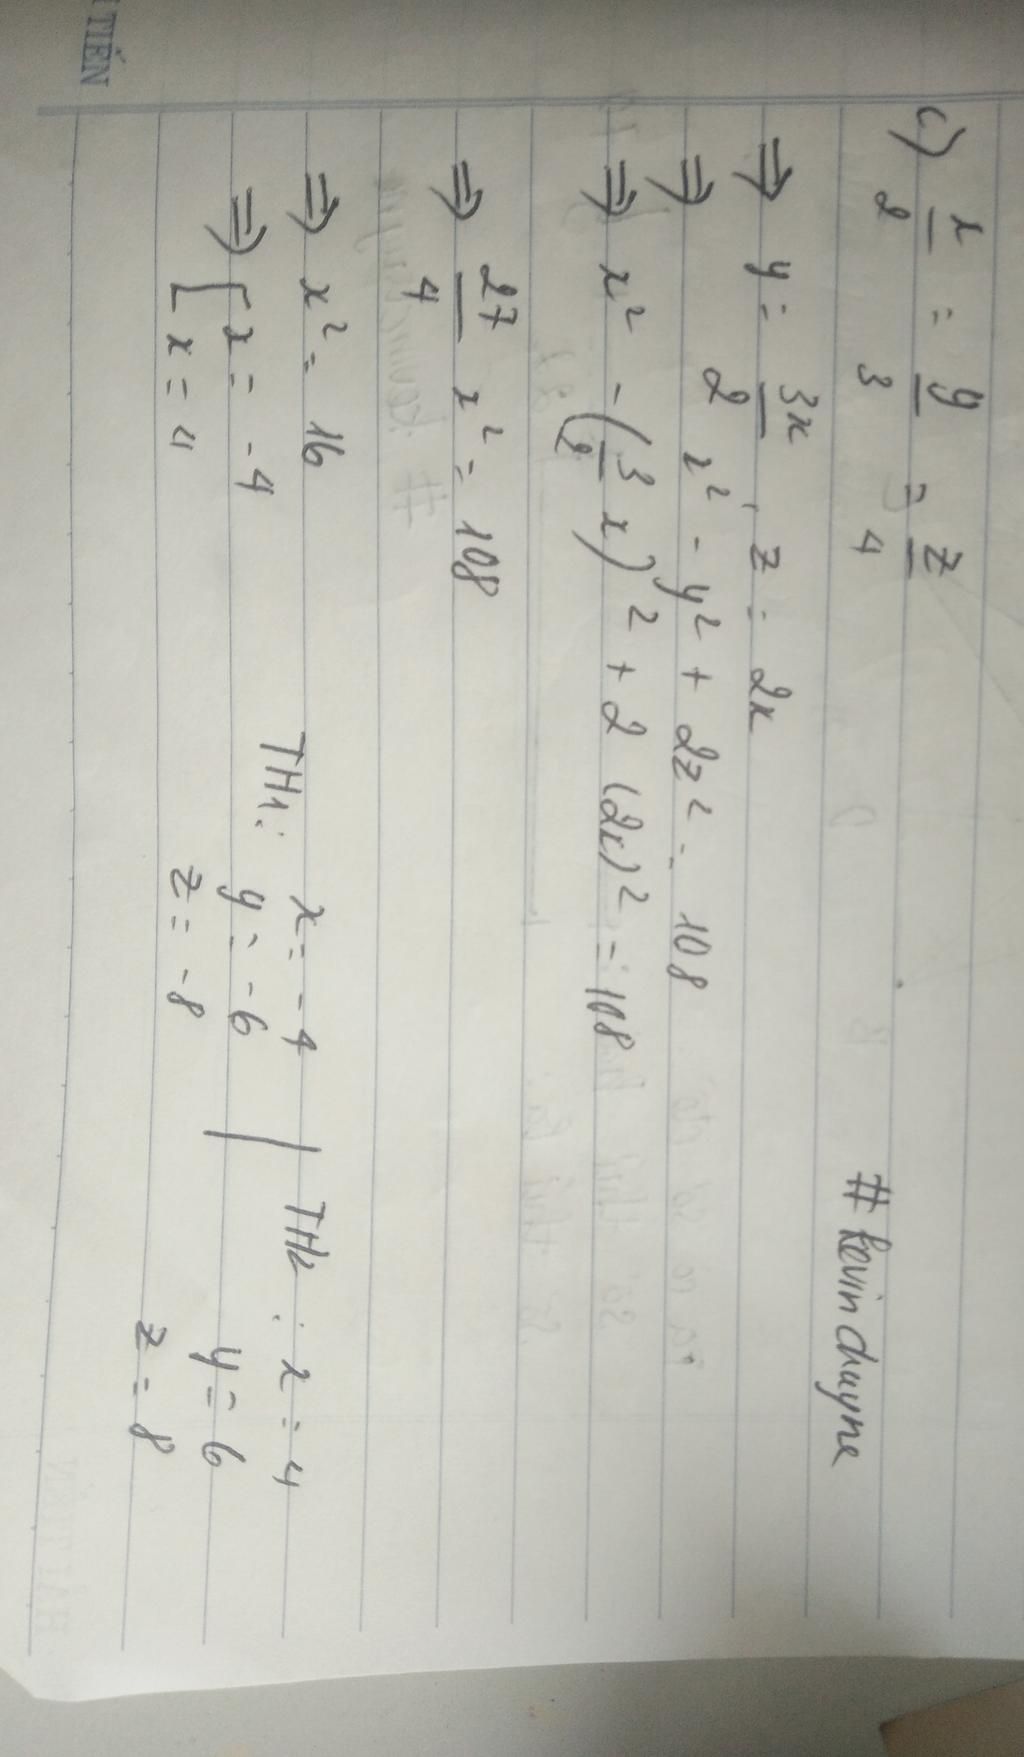 TIẾN
c) x/2 = y/3 = z/4
# kevin chuyne
⇒ y = 3x/2 , z = 2x
⇒ x² - y² + 2z² = 108
⇒ x² - (3/2 x)² + 2 (2x)² = 108
⇒ 27/4 x² = 108
⇒ x² = 16
⇒ [ x = -4
x = 4
TH1: x = -4
y = -6
z = -8
TH2: x = 4
y = 6
z = 8